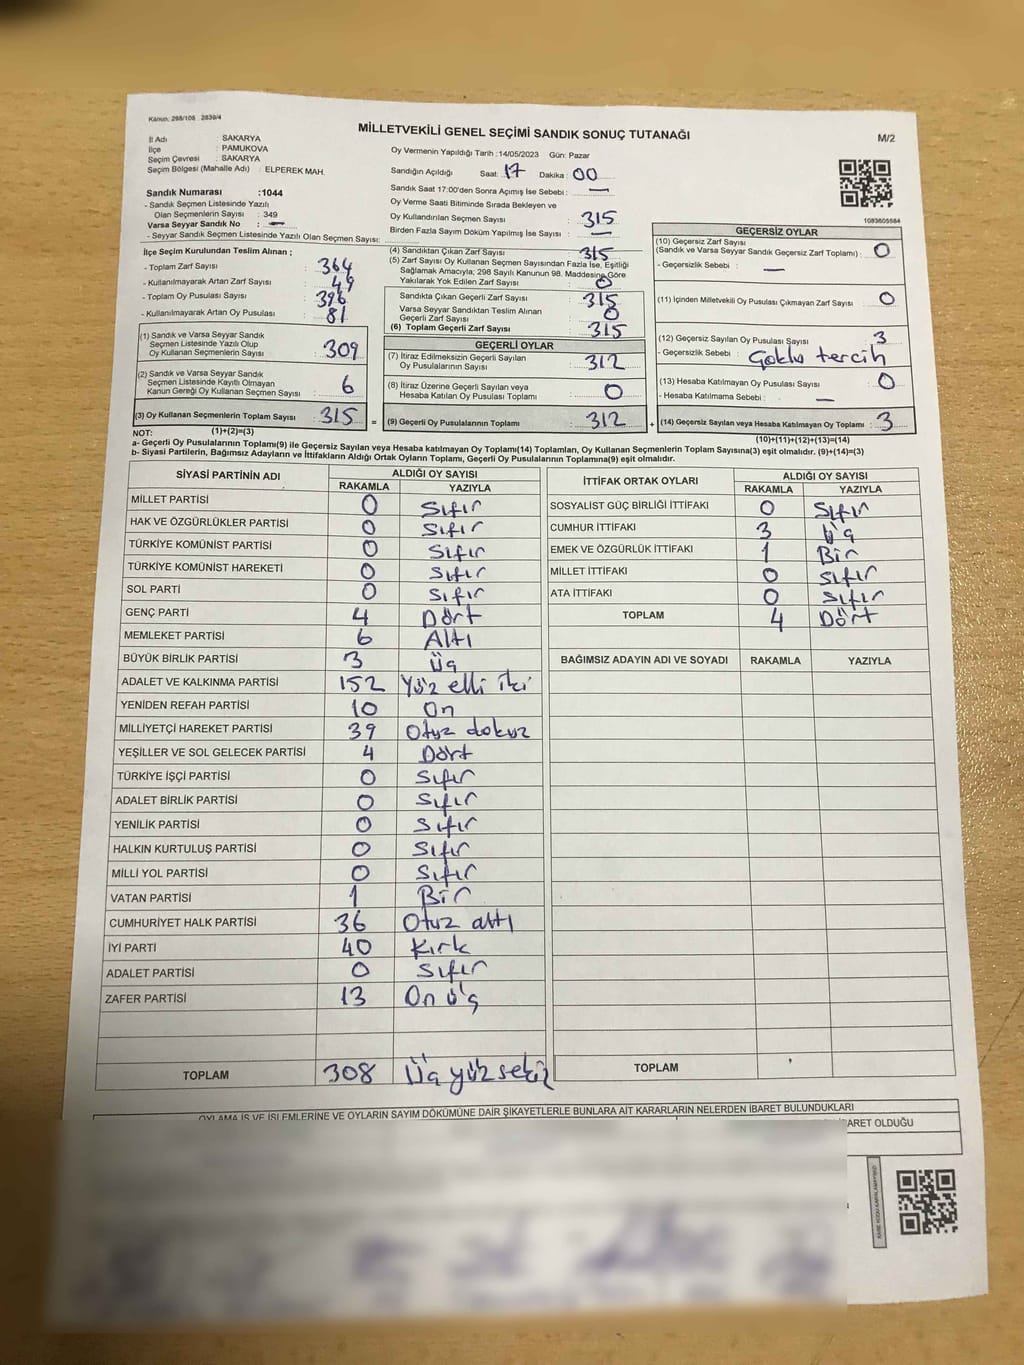 Kanun: 298/106 2839/4
MİLLETVEKİLİ GENEL SEÇİMİ SANDIK SONUÇ TUTANAĞI
M/2
İl Adı : SAKARYA
İlçe : PAMUKOVA
Seçim Çevresi : SAKARYA
Seçim Bölgesi (Mahalle Adı) : ELPEREK MAH.
Sandık Numarası :1044
- Sandık Seçmen Listesinde Yazılı
Olan Seçmenlerin Sayısı : 349
Varsa Seyyar Sandık No : —
- Seyyar Sandık Seçmen Listesinde Yazılı Olan Seçmen Sayısı:
İlçe Seçim Kurulundan Teslim Alınan ;
- Toplam Zarf Sayısı : 364
- Kullanılmayarak Artan Zarf Sayısı : 49
- Toplam Oy Pusulası Sayısı : 396
- Kullanılmayarak Artan Oy Pusulası : 81
(1) Sandık ve Varsa Seyyar Sandık
Seçmen Listesinde Yazılı Olup
Oy Kullanan Seçmenlerin Sayısı : 309
(2) Sandık ve Varsa Seyyar Sandık
Seçmen Listesinde Kayıtlı Olmayan
Kanun Gereği Oy Kullanan Seçmen Sayısı : 6
(3) Oy Kullanan Seçmenlerin Toplam Sayısı : 315 =
Oy Vermenin Yapıldığı Tarih :14/05/2023 Gün: Pazar
Sandığın Açıldığı Saat: 17 Dakika : 00
Sandık Saat 17:00'den Sonra Açımış İse Sebebi : —
Oy Verme Saati Bitiminde Sırada Bekleyen ve
Oy Kullandırılan Seçmen Sayısı : 315
Birden Fazla Sayım Döküm Yapılmış İse Sayısı : —
(4) Sandıktan Çıkan Zarf Sayısı : 315
(5) Zarf Sayısı Oy Kullanan Seçmen Sayısından Fazla İse, Eşitliği
Sağlamak Amacıyla; 298 Sayılı Kanunun 98. Maddesine Göre
Yakılarak Yok Edilen Zarf Sayısı : 0
Sandıkta Çıkan Geçerli Zarf Sayısı : 315
Varsa Seyyar Sandıktan Teslim Alınan
Geçerli Zarf Sayısı : 0
(6) Toplam Geçerli Zarf Sayısı : 315
GEÇERLİ OYLAR
(7) İtiraz Edilmeksizin Geçerli Sayılan
Oy Pusulalarının Sayısı : 312
(8) İtiraz Üzerine Geçerli Sayılan veya
Hesaba Katılan Oy Pusulası Toplamı : 0
(9) Geçerli Oy Pusulalarının Toplamı : 312 +
1083605584
GEÇERSİZ OYLAR
(10) Geçersiz Zarf Sayısı
(Sandık ve Varsa Seyyar Sandık Geçersiz Zarf Toplamı) : 0
- Geçersizlik Sebebi : —
(11) İçinden Milletvekili Oy Pusulası Çıkmayan Zarf Sayısı : 0
(12) Geçersiz Sayılan Oy Pusulası Sayısı : 3
- Geçersizlik Sebebi : Çoklu tercih
(13) Hesaba Katılmayan Oy Pusulası Sayısı : 0
- Hesaba Katılmama Sebebi : —
(14) Geçersiz Sayılan veya Hesaba Katılmayan Oy Toplamı : 3
NOT: (1)+(2)=(3) (10)+(11)+(12)+(13)=(14)
a- Geçerli Oy Pusulalarının Toplamı(9) ile Geçersiz Sayılan veya Hesaba katılmayan Oy Toplamı(14) Toplamları, Oy Kullanan Seçmenlerin Toplam Sayısına(3) eşit olmalıdır. (9)+(14)=(3)
b- Siyasi Partilerin, Bağımsız Adayların ve İttifakların Aldığı Ortak Oyların Toplamı, Geçerli Oy Pusulalarının Toplamına(9) eşit olmalıdır.
SİYASİ PARTİNİN ADI ALDIĞI OY SAYISI
RAKAMLA YAZIYLA
MİLLET PARTİSİ 0 Sıfır
HAK VE ÖZGÜRLÜKLER PARTİSİ 0 Sıfır
TÜRKİYE KOMÜNİST PARTİSİ 0 Sıfır
TÜRKİYE KOMÜNİST HAREKETİ 0 Sıfır
SOL PARTİ 0 Sıfır
GENÇ PARTİ 4 Dört
MEMLEKET PARTİSİ 6 Altı
BÜYÜK BİRLİK PARTİSİ 3 Üç
ADALET VE KALKINMA PARTİSİ 152 Yüz elli iki
YENİDEN REFAH PARTİSİ 10 On
MİLLİYETÇİ HAREKET PARTİSİ 39 Otuz dokuz
YEŞİLLER VE SOL GELECEK PARTİSİ 4 Dört
TÜRKİYE İŞÇİ PARTİSİ 0 Sıfır
ADALET BİRLİK PARTİSİ 0 Sıfır
YENİLİK PARTİSİ 0 Sıfır
HALKIN KURTULUŞ PARTİSİ 0 Sıfır
MİLLİ YOL PARTİSİ 0 Sıfır
VATAN PARTİSİ 1 Bir
CUMHURİYET HALK PARTİSİ 36 Otuz altı
İYİ PARTİ 40 Kırk
ADALET PARTİSİ 0 Sıfır
ZAFER PARTİSİ 13 On üç
TOPLAM 308 Üç yüz sekiz
İTTİFAK ORTAK OYLARI ALDIĞI OY SAYISI
RAKAMLA YAZIYLA
SOSYALİST GÜÇ BİRLİĞİ İTTİFAKI 0 Sıfır
CUMHUR İTTİFAKI 3 üç
EMEK VE ÖZGÜRLÜK İTTİFAKI 1 Bir
MİLLET İTTİFAKI 0 Sıfır
ATA İTTİFAKI 0 Sıfır
TOPLAM 4 Dört
BAĞIMSIZ ADAYIN ADI VE SOYADI RAKAMLA YAZIYLA
TOPLAM
OYLAMA İŞ VE İŞLEMLERİNE VE OYLARIN SAYIM DÖKÜMÜNE DAİR ŞİKAYETLERLE BUNLARA AİT KARARLARIN NELERDEN İBARET BULUNDUKLARI
BARET OLDUĞU